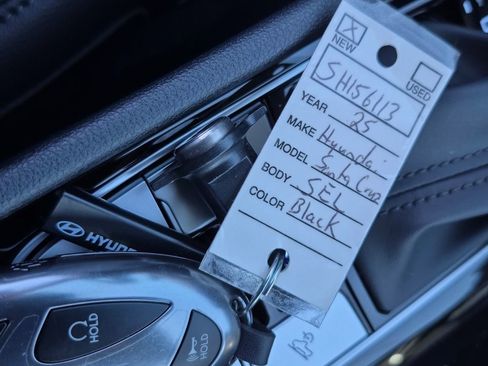 X
NEW
USED
SH156113
YEAR 25
MAKE Hyundai
MODEL Santa Cruz
BODY SEL
COLOR Black
HYUN
HOLD
HOLD